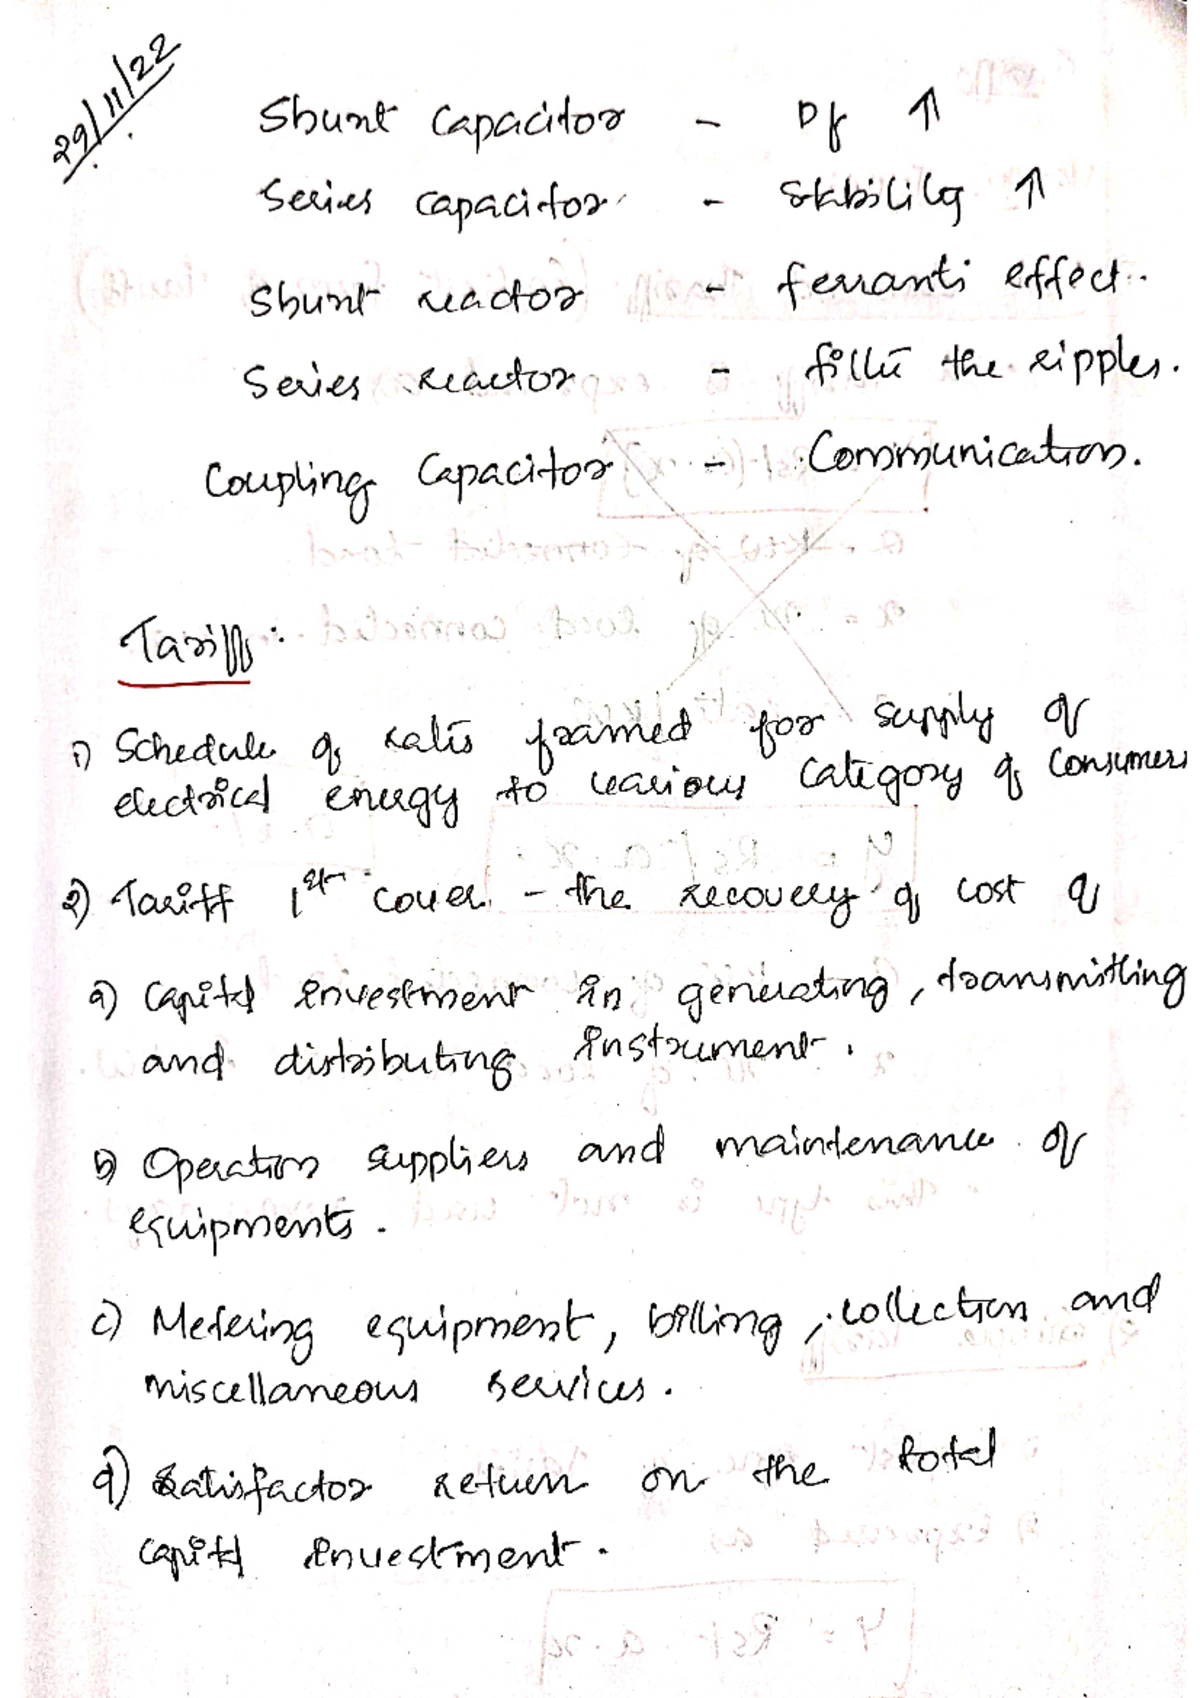 29/11/22
Shunt Capacitor - Pf ⇑
Series capacitor - Stability ⇑
Shunt reactor - ferranti effect.
Series reactor - filter the ripples.
Coupling Capacitor - Communication.
Tariff:
1) Schedule of rates framed for supply of
electrical energy to various category of consumers
2) Tariff 1st cover - the recovery of cost of
a) Capital investment in generating, transmitting
and distributing instrument.
b) Operation suppliers and maintenance of
equipments.
c) Metering equipment, billing, collection and
miscellaneous services.
d) Satisfactor return on the total
capital investment.